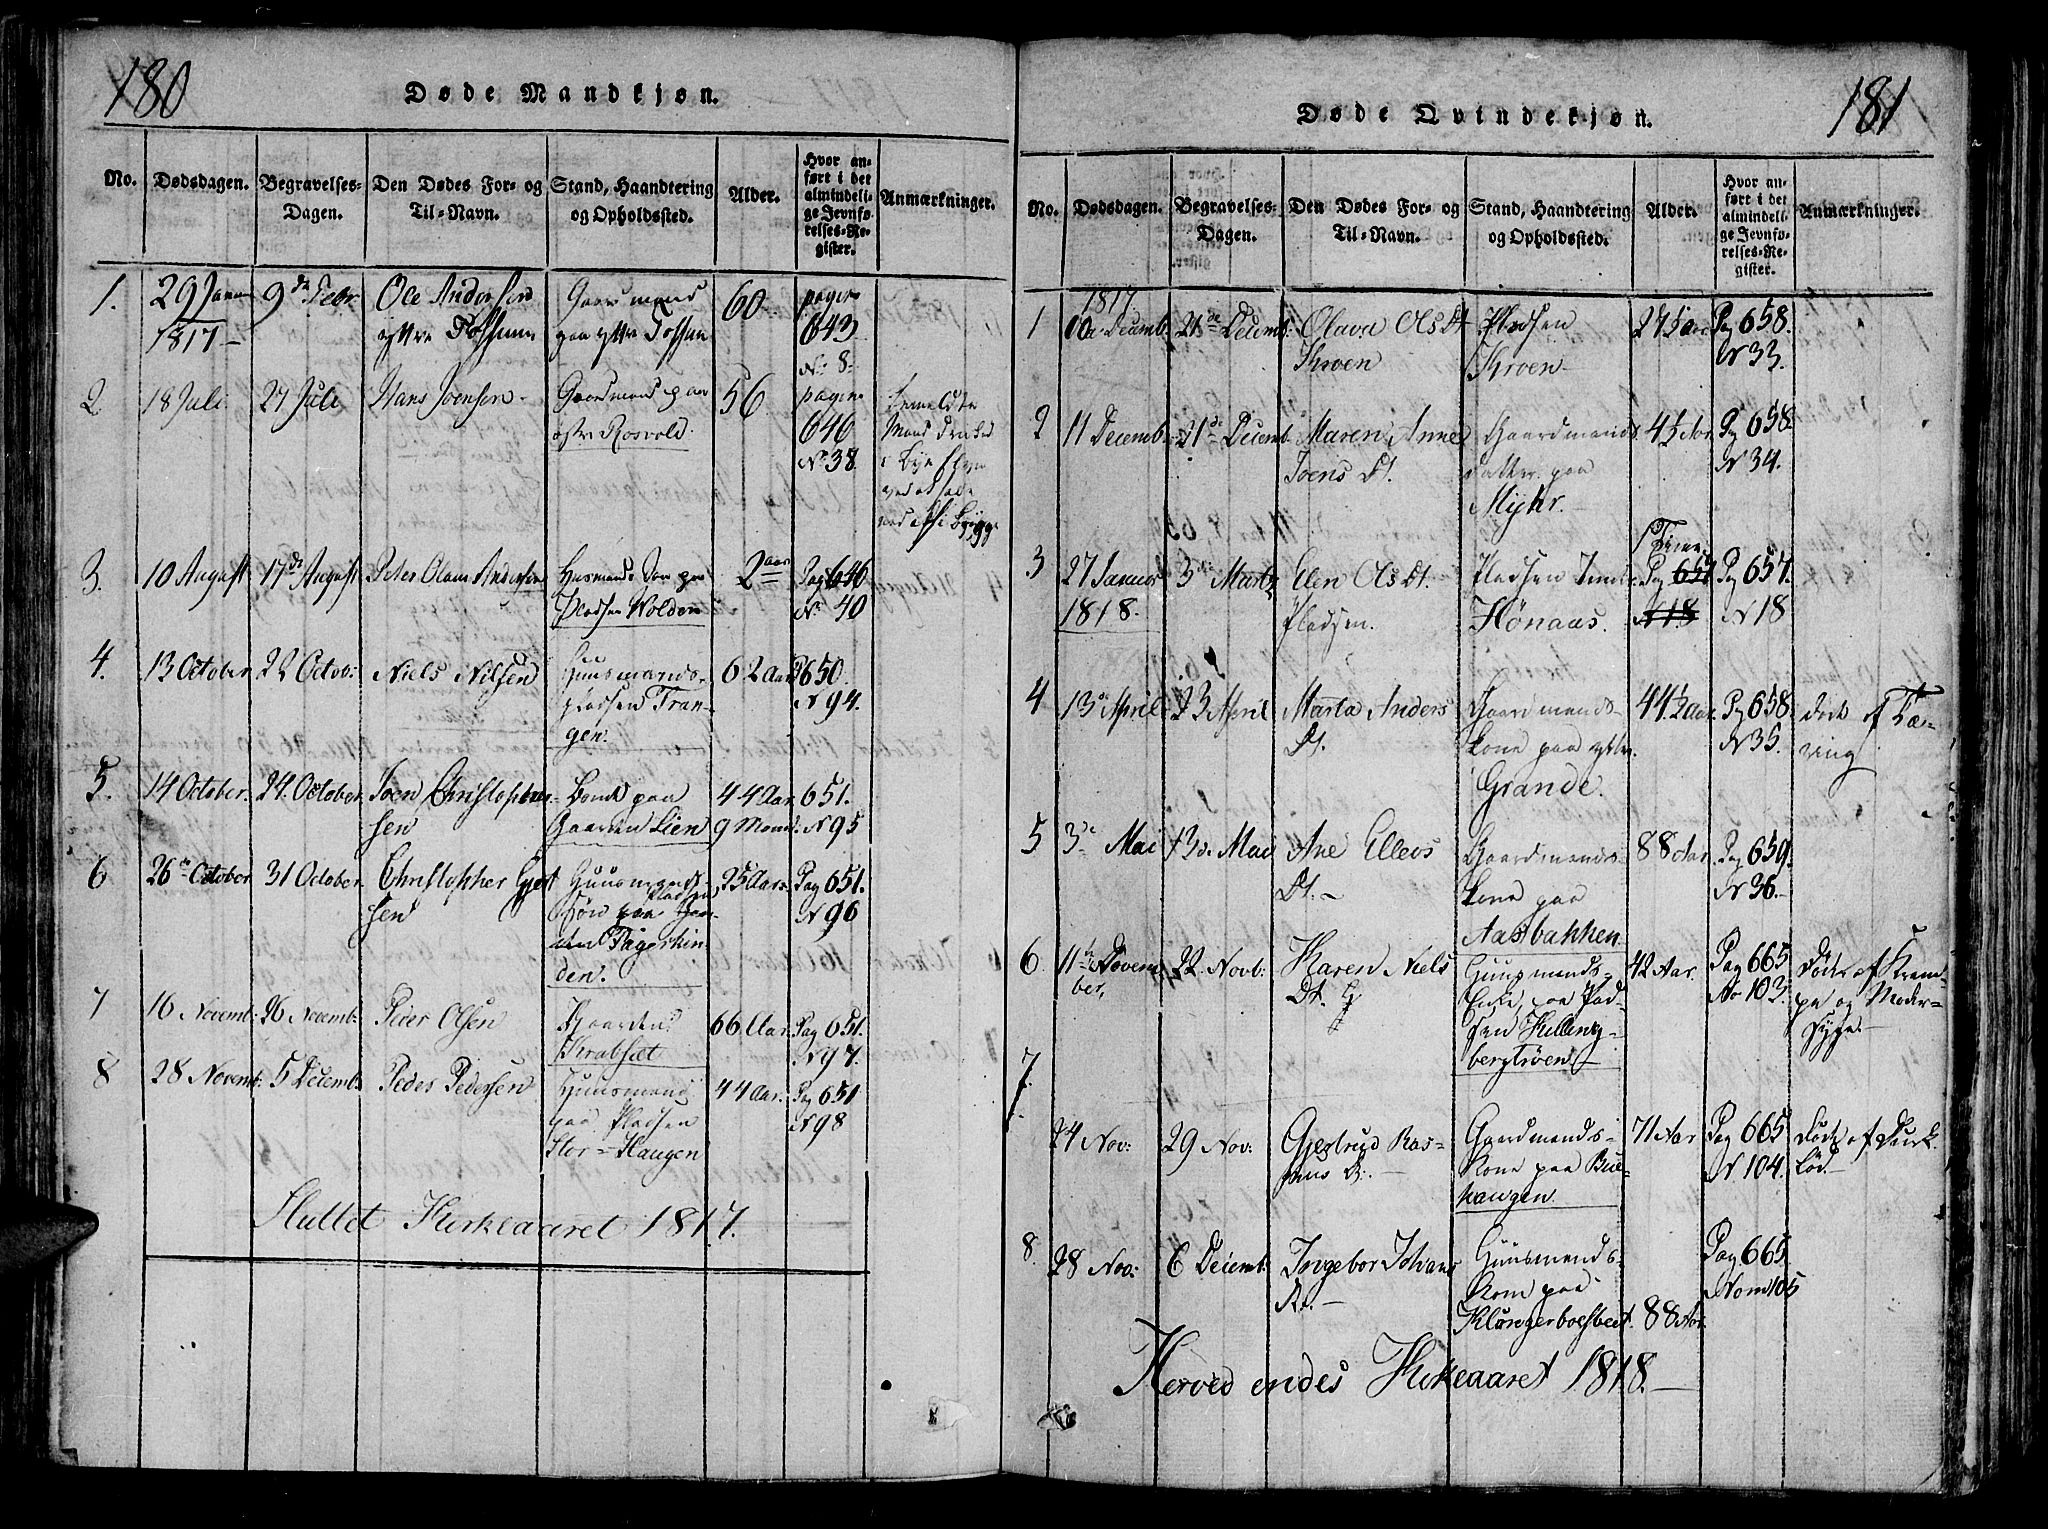 180
Døde Mandkjøn.
No.
Dødsdagen.
Begravelses-
Dagen.
Den Dødes For- og
Til-Navn.
Stand, Haandtering
og Opholdssted.
Alder.
Hvor an-
ført i det
almindeli-
ge Jevnfø-
relses-Re-
gister.
Anmærkninger.
1.
29 Janu
1817 -
9de Febr.
Ole Andersen
yttre Fossum
Gaardmand
paa yttre Fossum
60
pagina
643
No. 8.
2
18 Juli.
27 Juli
Hans Joensen -
Gaardmand paa
østre Rosvold.
56
pagina
646
No. 38.
3.
10 August
17de August
Peter Olaus Andersen
Husmands Søn paa
Pladsen Wolden
2 aar
Pag 646
No. 40
4.
13 October
22 Octob:
Niels Nilsen
Huusmands-
pladsen Tran-
gen.
62 Aar
P 650
N 94.
5.
14 October.
24. October.
Joen Christopher-
sen
Bonde paa
Gaarden Lien
44 Aar
9 Maand:
651.
N 95
6
26de October
31 October.
Christopher Gjert
sen
Huusmands-
søn paa Pladsen
den Fagerhin-
den.
25 Aar.
Pag 651.
N 96
7
16 Novemb:
26 Novemb:
Peter Olsen
Gaarden
Krabsæt
66 Aar.
Pag 651.
N 97.
8
28 Novemb:
5 Decemb.
Peder Pedersen
Huusmand
paa Pladsen
Stor=Haugen
44 Aar.
Pag 651
N 98
Sluttet Kirkeaaret 1817.
181
Døde Qvindekjøn.
No.
Dødsdagen.
Begravelses-
Dagen.
Den Dødes For- og
Til-Navn.
Stand, Haandtering
og Opholdssted.
Alder.
Hvor an-
ført i det
almindeli-
ge Jevnfø-
relses-Re-
gister.
Anmærkninger.
1
1817
Decemb.
21de Decemb:
Olava Ols Dt
Kroen
Pladsen
Kroen -
Pag 658.
N 33.
2
11 Decemb.
21de Decemb
Maren Anne
Joens Dt.
Gaardmands
datter paa
Myhr.
4½ Aar
Pag 658.
N 34.
3
27 Januar
1818.
3de Martz
Elen Ols Dt.
Pladsen.
Pladsen
Hönaas.
Pag 657
N 18
Pag 657.
N 18
4
13de April
23 April
Marta Anders
Dt.
Gaardmands-
kone paa yttre
Grande.
44½ Aar.
Pag 658.
N 35.
døde af Tæ-
ring
5
3de Mai
13de Mai
Ane Ellevs
Dt. -
Gaardmands-
kone paa
Aasbakken
88 Aar
Pag 659.
N 36.
6
11te Novem
ber,
22. Novb:
Karen Niels
Dt.
Huusmands-
Enke paa Plad-
sen Kelleng-
bergtröen
42 Aar.
Pag 665
No 103.
Døde af Kram-
pe og Moder-
syge.
7
24 Nov:
29 Nov:
Gjertrud Ras-
mus D. -
Gaardmands-
Kone paa Bue-
haugen
71 Aar
Pag 665
N 104.
Døde af Durk-
löb.
8
28 Nov:
6 Decemb:
Ingebor Johans
Dt. -
Huusmands-
Kone paa
88 Aar.
Pag 665
Nom 105
Herved endes Kirkeaaret 1818. -